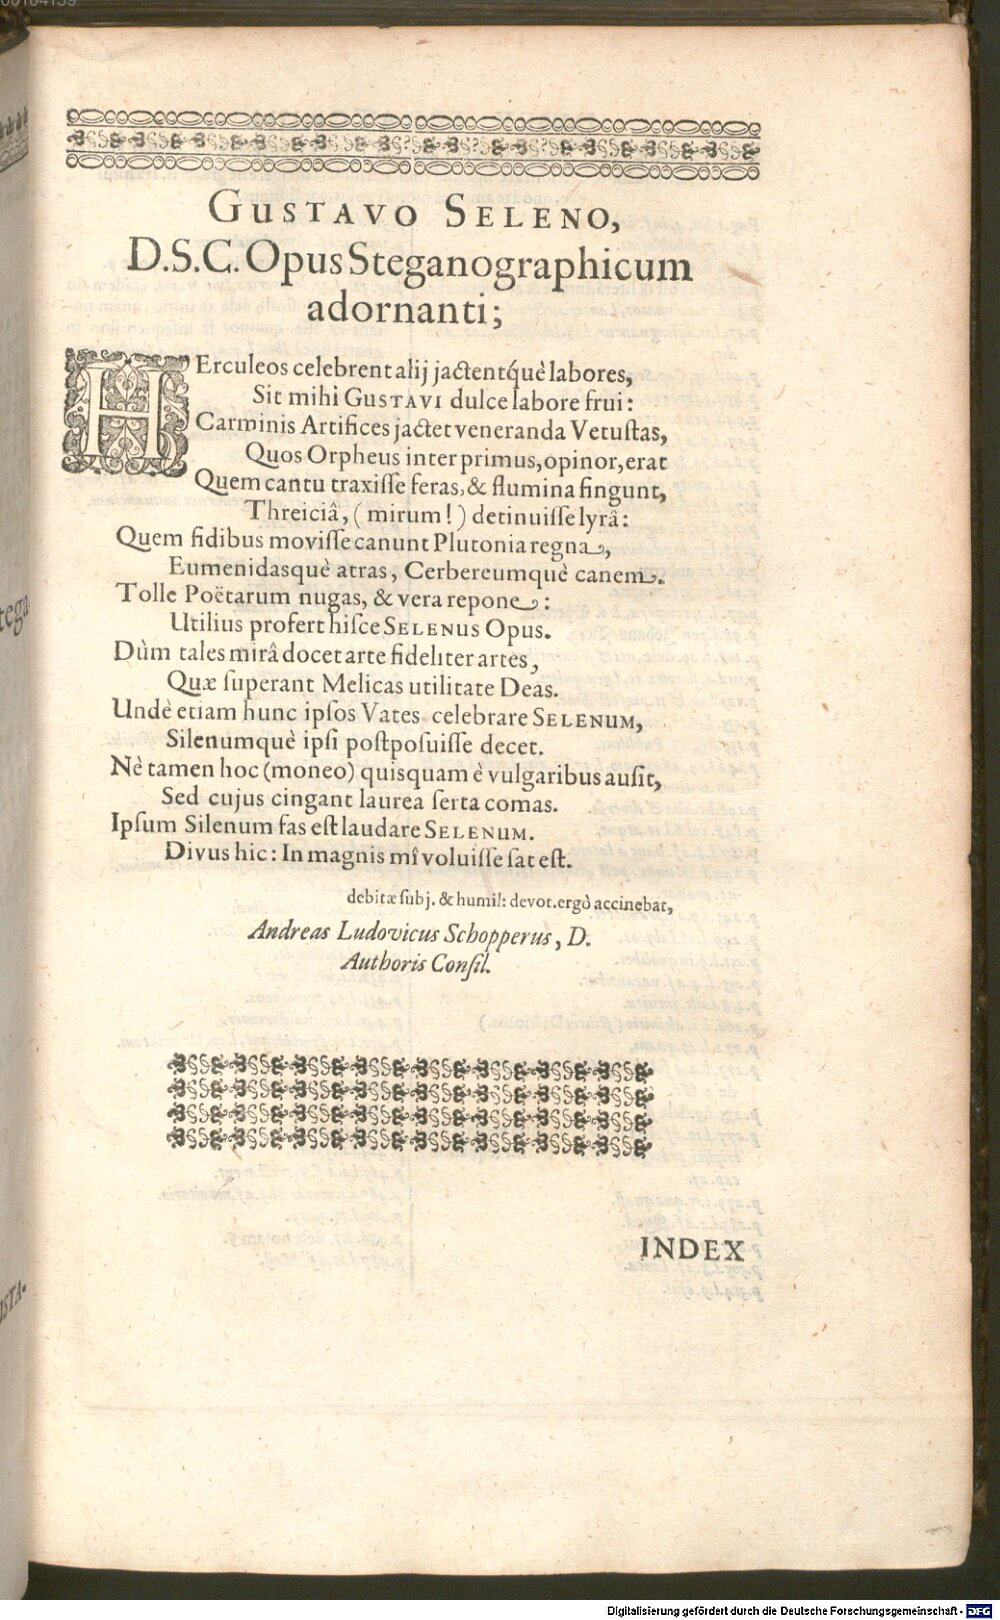 GUSTAVO SELENO,
D.S.C. Opus Steganographicum
adornanti;
HErculeos celebrent alij jactentq́uè labores,
Sit mihi GUSTAVI dulce labore frui:
Carminis Artifices jactet veneranda Vetuſtas,
Quos Orpheus inter primus, opinor, erat
Quem cantu traxiſſe feras, & flumina fingunt,
Threiciâ, ( mirum! ) detinuiſſe lyrâ:
Quem fidibus moviſſe canunt Plutonia regna,
Eumenidasquè atras, Cerbereumquè canem.
Tolle Poëtarum nugas, & vera repone:
Utilius profert hiſce SELENUS Opus.
Dùm tales mirâ docet arte fideliter artes,
Quæ ſuperant Melicas utilitate Deas.
Undè etiam hunc ipſos Vates celebrare SELENUM,
Silenumquè ipſi poſtpoſuiſſe decet.
Nè tamen hoc (moneo) quisquam è vulgaribus auſit,
Sed cujus cingant laurea ſerta comas.
Ipſum Silenum fas eſt laudare SELENUM.
Divus hic: In magnis mî voluiſſe ſat eſt.
debitæ ſubj. & humil: devot. ergò accinebat,
Andreas Ludovicus Schopperus, D.
Authoris Conſil.
INDEX
tega
ISTA-
Digitalisierung gefördert durch die Deutsche Forschungsgemeinschaft - DFG